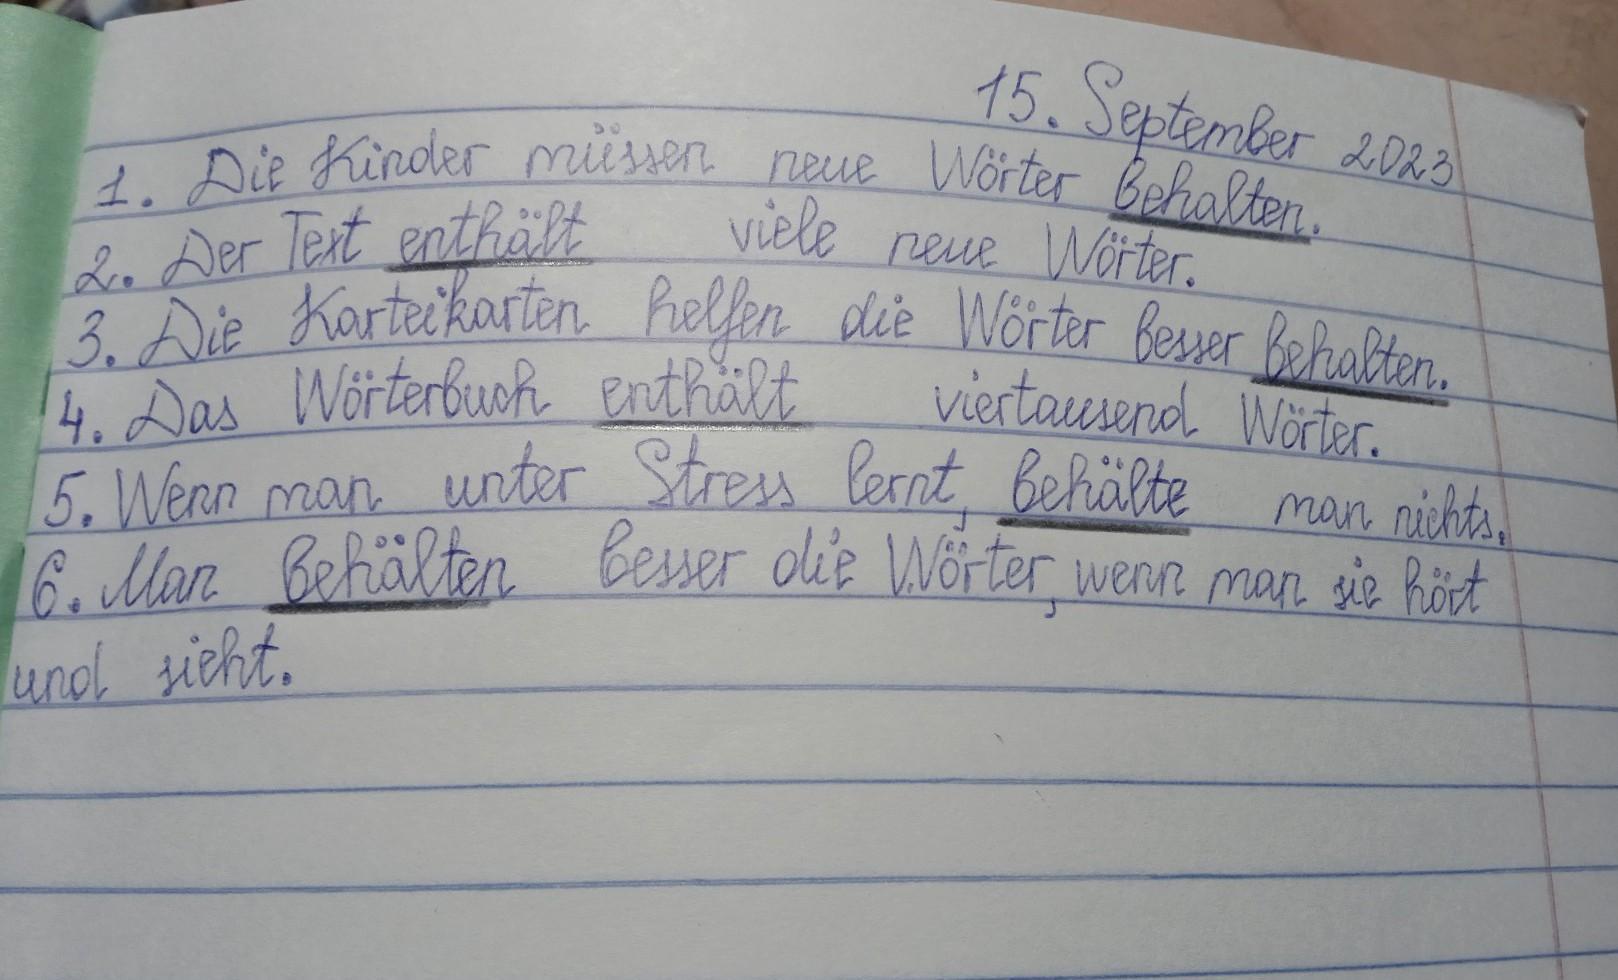 15. September 2023
1. Die Kinder müssen neue Wörter behalten.
2. Der Text enthält viele neue Wörter.
3. Die Karteikarten helfen die Wörter besser behalten.
4. Das Wörterbuch enthält viertausend Wörter.
5. Wenn man unter Stress lernt, behälte man nichts.
6. Man behälten besser die Wörter, wenn man sie hört
und sieht.